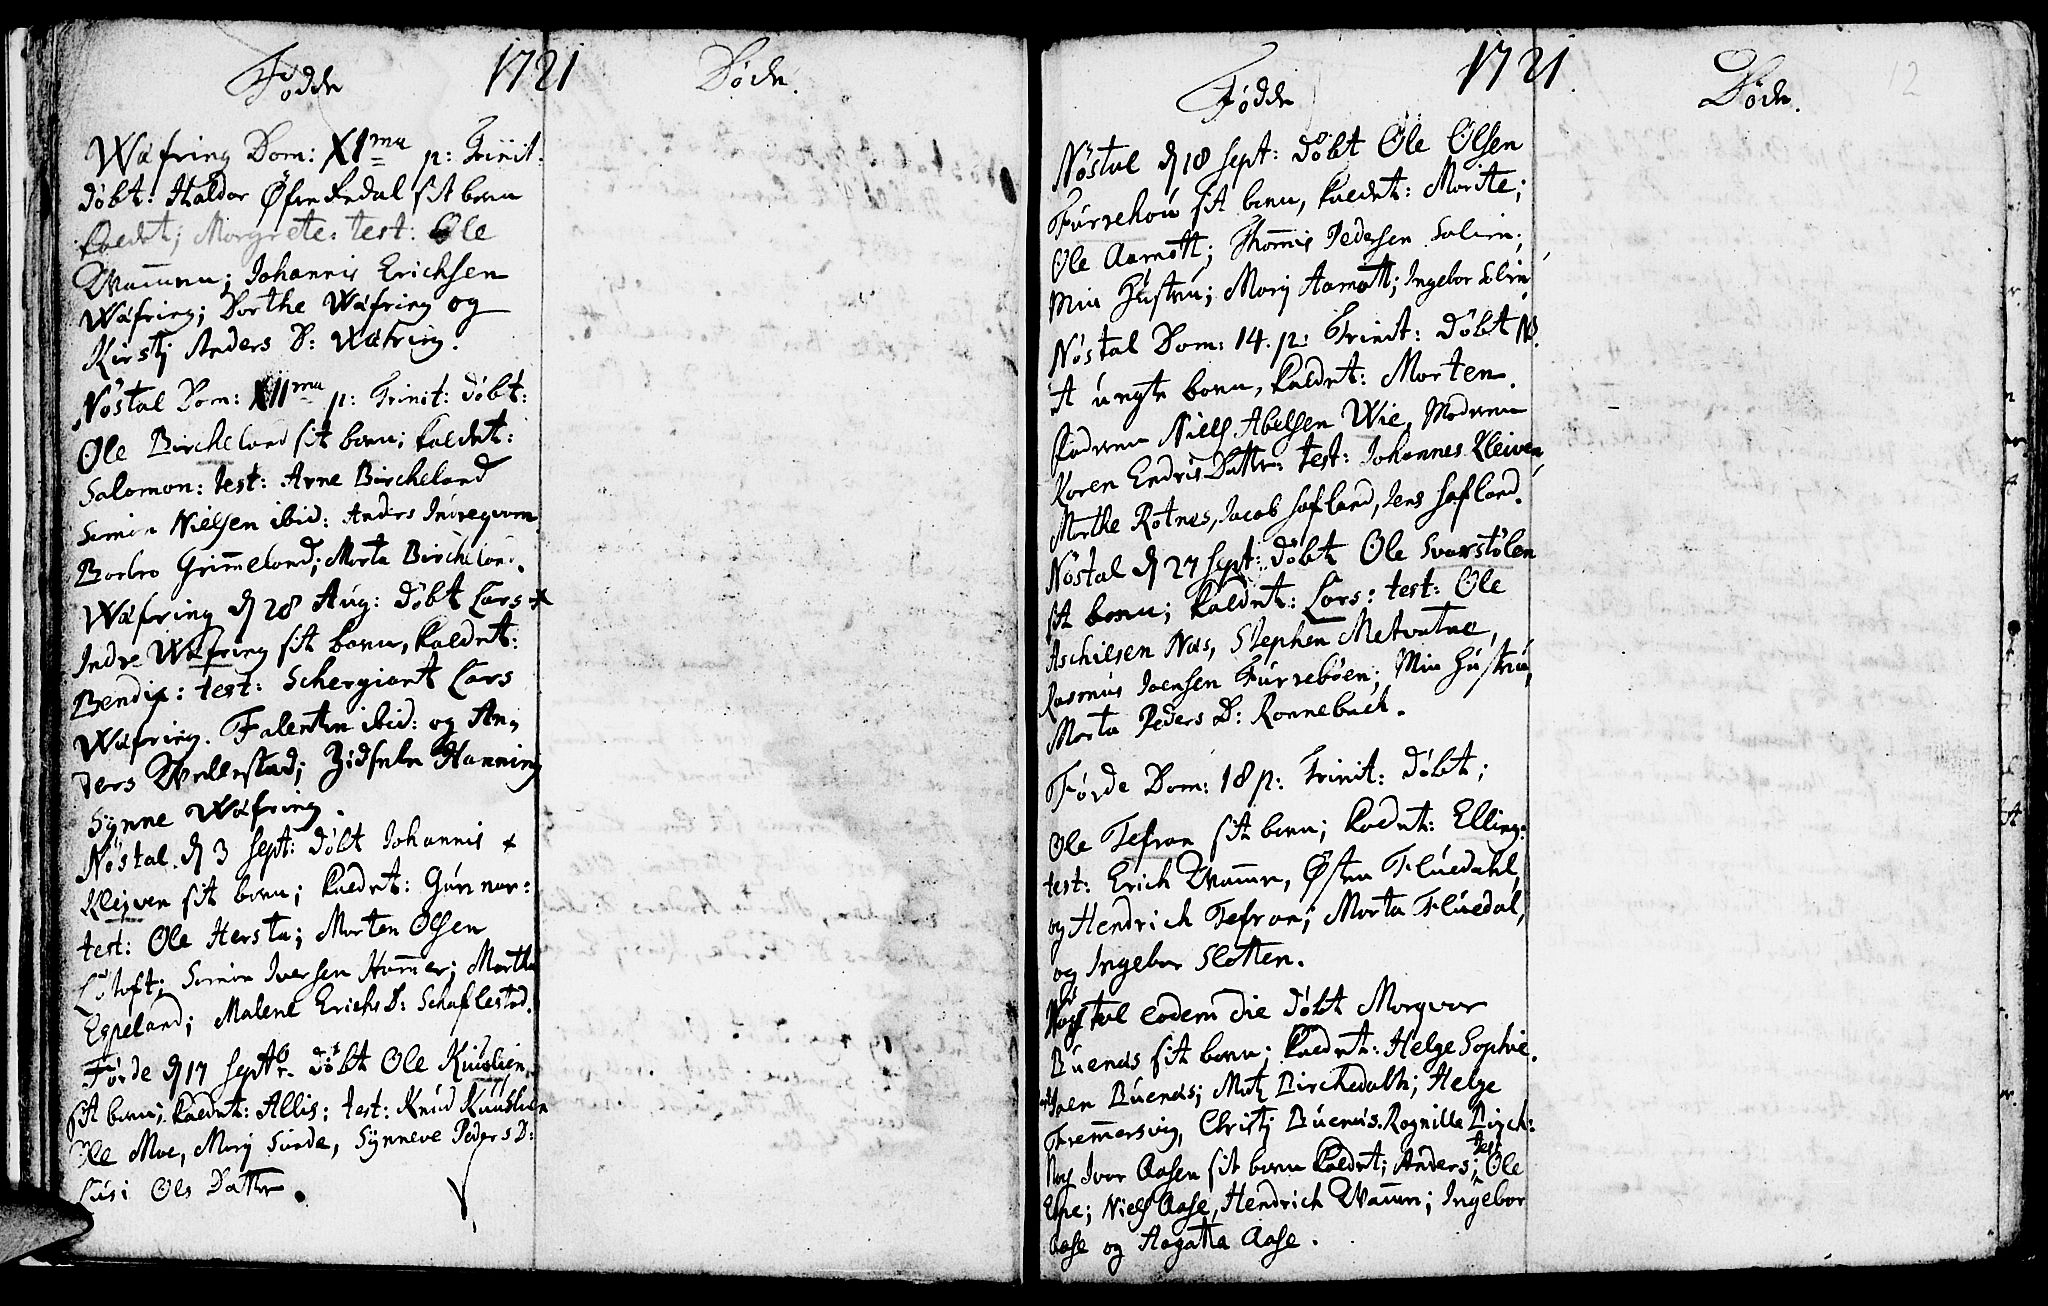 1721
Fødde
Døde.
Wæfring Dom: XI ma p: Trinit:
døbt: Haldor Øfre Fedal sit barn
kaldet; Morgrete: test: Ole
Wammen; Johannis Erichsen
Wæfring; Dorthe Wæfring og
Kirstj Anders D: Wæfring.
Nøstal Dom: XII ma p: Trinit: døbt:
Ole Bircheland sit barn; kaldet:
Salomon: test: Arne Bircheland
Simon Nielsen ibid: Anders Indreqvam
Barbro Grimmeland; Morta Bircheland.
Wæfring d 28 Aug: døbt Lars
Indre Wæfring sit barn, kaldet:
Bendix: test: Schergiant Lars
Wæfring. Falentin ibid: og An,
ders Wellestad; Zidsele Hanning
Synne Wæfring.
Nøstal d 3 Sept: døbt Johannis
Klejven sit barn; kaldet: Gunnar:
test: Ole Hersta; Morten Olsen
Løtoft; Simon Iversen Hammer; Martha
Espeland; Malene Erichs D: Schaflestad.
Førde d 17 Septbr: døbt Ole Kuuslien
sit barn; kaldet: Allis; test: Knud Kuuslien
Ole Moe, Marj Sunde, Synneve Peders D:
Lusi Ols Datter.
1721.
Fødde
Døde.
12
Nøstal d 18 Sept: døbt Ole Olsen
Furrehou sit barn, kaldet: Morite;
Ole Aamott; Thommis Pedersen Solim;
Min Hustru; Marj Aamott; Ingebor
Nøstal Dom: 14. p: Trinit: døbt N.
it ungte barn, kaldet: Morten
Faderen Niels Abelsen Wie, Moderen
Karen Endris Datter: test: Johannes Kleiven
Marthe Rotnes, Jacob Hafland, Jens Hafland.
Nøstal d 27 Sept: døbt Ole Svarstølen
sit barn; kaldet: Lars: test: Ole
Aschilsen Nas, Stephen Metvatne,
Rasmus Joensen Furrebøen; Min Hustru,
Morta Peders D: Ronnebach.
Førde Dom: 18 p: Trinit: døbt;
Ole Tefran sit barn; kaldet: Elling:
test: Erich Wammen, Østen Fluedahl,
og Hendrich Tefran; Morta Fluedal,
og Ingebor Sletten.
Nøstal eodem die døbt Morqvar
Buenæs sit barn; kaldet: Helge Sophie.
Joen Buenæs; Matz Birchedalh; Helge
Tremmersvig, Christj Buenæs. Rognille Birch:
Iver Aasen sit barn kaldet; Anders; test Ole
Espe; Niels Aase, Hendrich Wammen; Ingebor
Aase og Aagatta Aase.